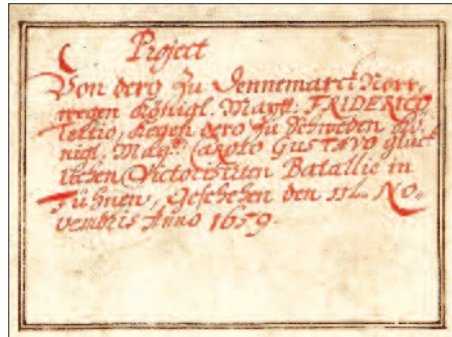 Project
Von dero zu Dennemarck Norr-
wegen Königl. Mayt. FRIDERICO
Tertio, kegen dero zu Schweden Kö-
nigl. May. CAROLO GUSTAVO glück
lichen Victorisirten Batallie in
Fühnen, geschehen den No-
vembris Anno 1659.